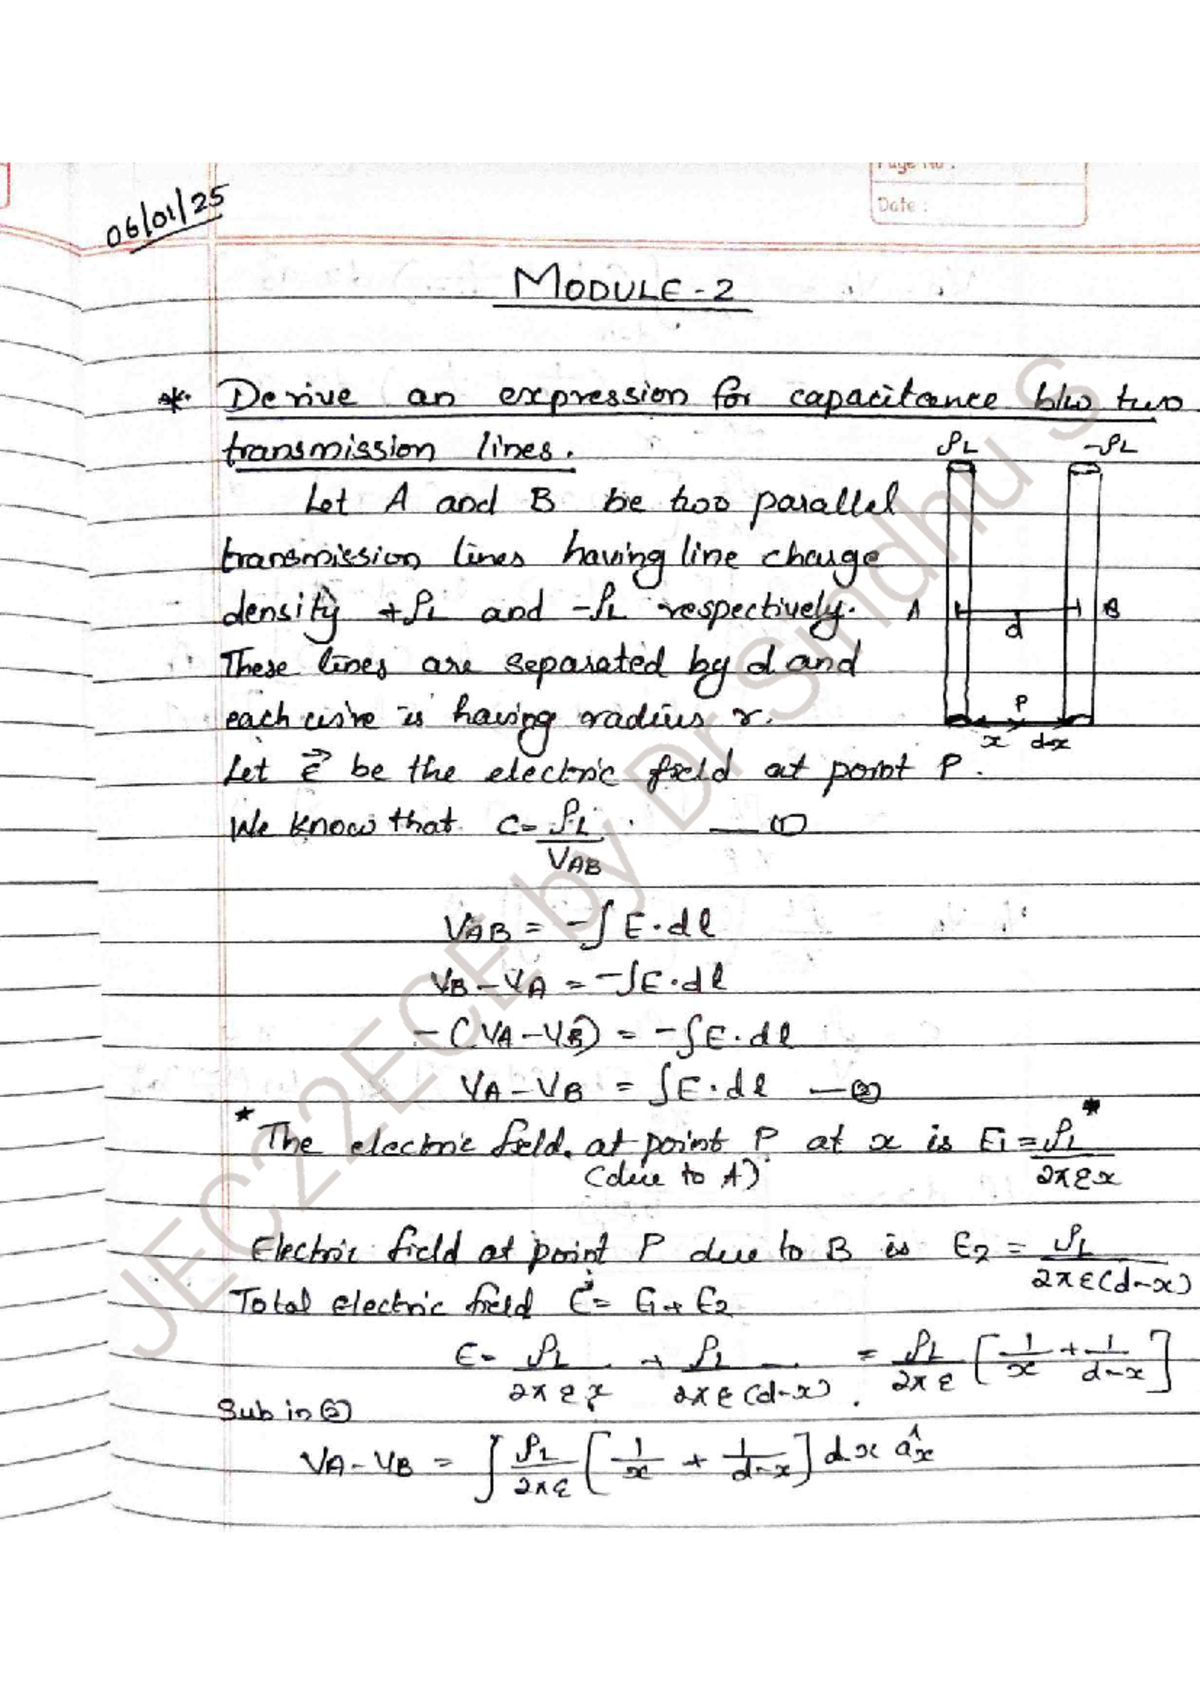 Page No :
Date :
06/01/25
MODULE-2
*. Derive an expression for capacitance b/w two
transmission lines.
ρL -ρL
Let A and B be two parallel
transmission lines having line charge
density +ρL and -ρL respectively.
A d B
These lines are separated by d and
each wire is having radius r.
P
x d-x
Let E⃗ be the electric field at point P.
We know that C = ρL/VAB — ①
VAB = -∫E·dl
VB - VA = -∫E·dl
-(VA - VB) = -∫E·dl
VA - VB = ∫E·dl — ②
* The electric field at point P at x is E1 = ρL/2πεx *
(due to A)
Electric field at point P due to B is E2 = ρL/2πε(d-x)
Total electric field E⃗ = E1 + E2
E = ρL/2πεx + ρL/2πε(d-x) = ρL/2πε [1/x + 1/d-x]
Sub in ②
VA - VB = ∫ ρL/2πε [1/x + 1/d-x] dx âx
JEC22ECE by Dr Sindhu S